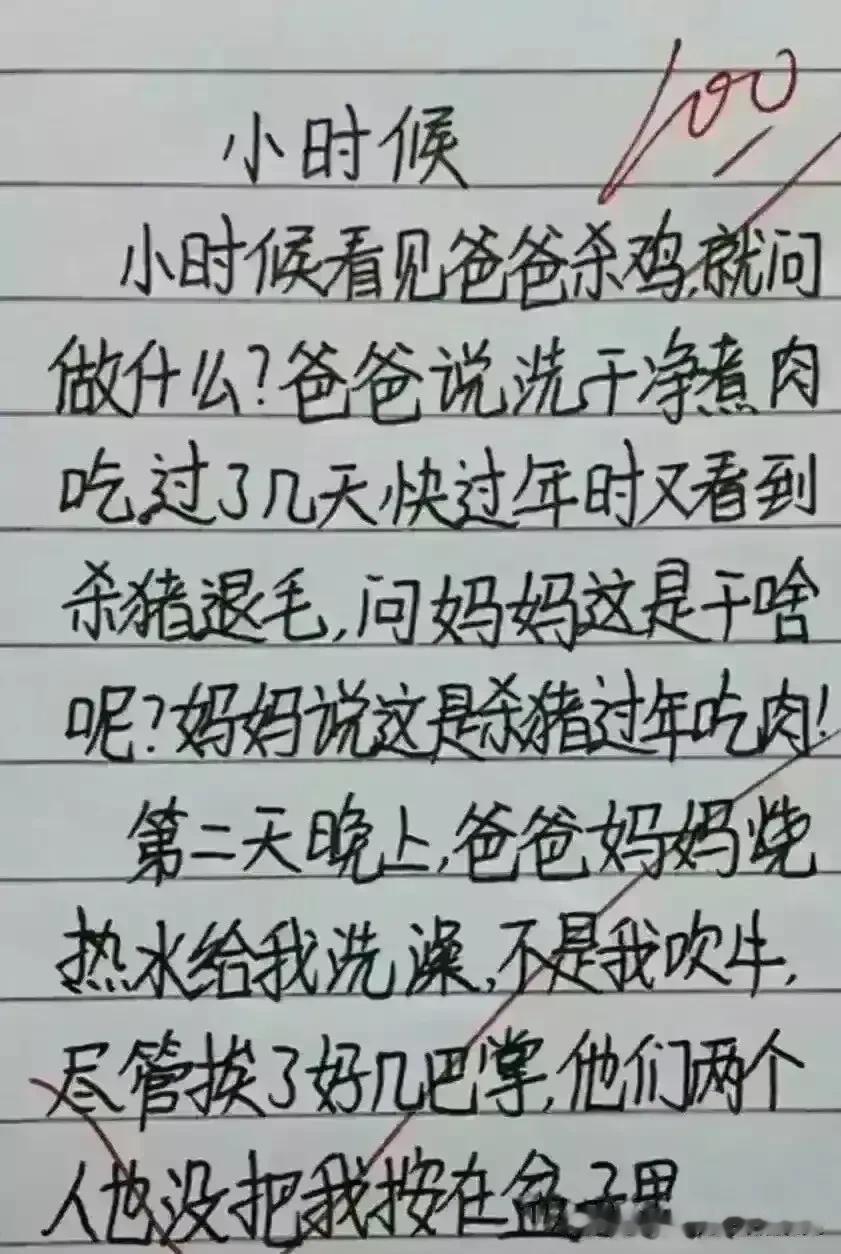 小时候
100
小时候看见爸爸杀鸡,就问
做什么?爸爸说洗干净煮肉
吃.过了几天快过年时又看到
杀猪退毛,问妈妈这是干啥
呢?妈妈说这是杀猪过年吃肉!
第二天晚上,爸爸妈妈烧
热水给我洗澡,不是我吹牛,
尽管挨了好几巴掌,他们两个
人也没把我按在盆子里